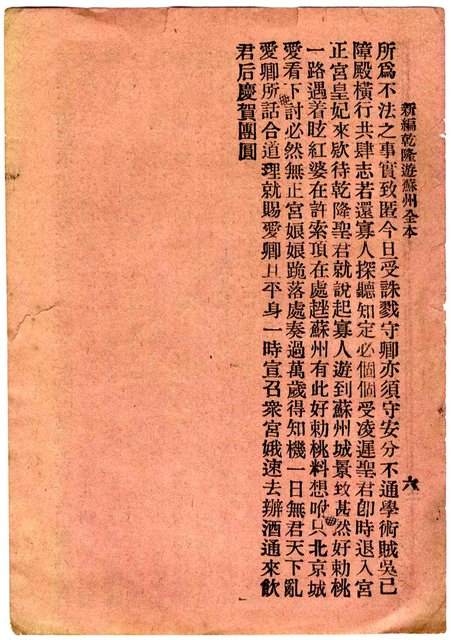 新編乾隆遊蘇州全本
六
所為不法之事實致匿今日受誅戮守卿亦須守安分不通學術賊吳己
障殿橫行共肆志若還寡人探聽知定必個個受凌遲聖君卽時退入宮
正宮皇妃來欵待乾隆聖君就說起寡人遊到蘇州城景致甚然好勅桃
一路遇着昡紅婆在許索頂在處趖蘇州有此好勅桃料想咱只北京城
愛看下討必然無正宮娘娘跪落處奏過萬歲得知機一日無君天下亂
愛卿所話合道理就賜愛卿且平身一時宣召衆宮娥速去辦酒通來飲
君后慶賀團圓